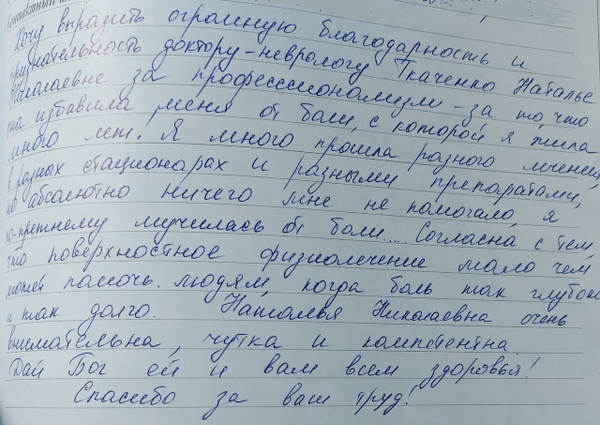 контактный
Хочу выразить огромную благодарность и
признательность доктору-неврологу Ткаченко Наталье
Николаевне за профессионализм - за то, что
она избавила меня от боли, с которой я жила
много лет. Я много прошла разного лечения
в разных стационарах и разными препаратами,
но абсолютно ничего мне не помогало, я
по-прежнему мучилась от боли.... Согласна с тем,
что поверхностное физиолечение мало чем
может помочь людям, когда боль так глубоко
и так долго. Наталья Николаевна очень
внимательна, чутка и компетентна.
Дай Бог ей и вам всем здоровья!
Спасибо за ваш труд!